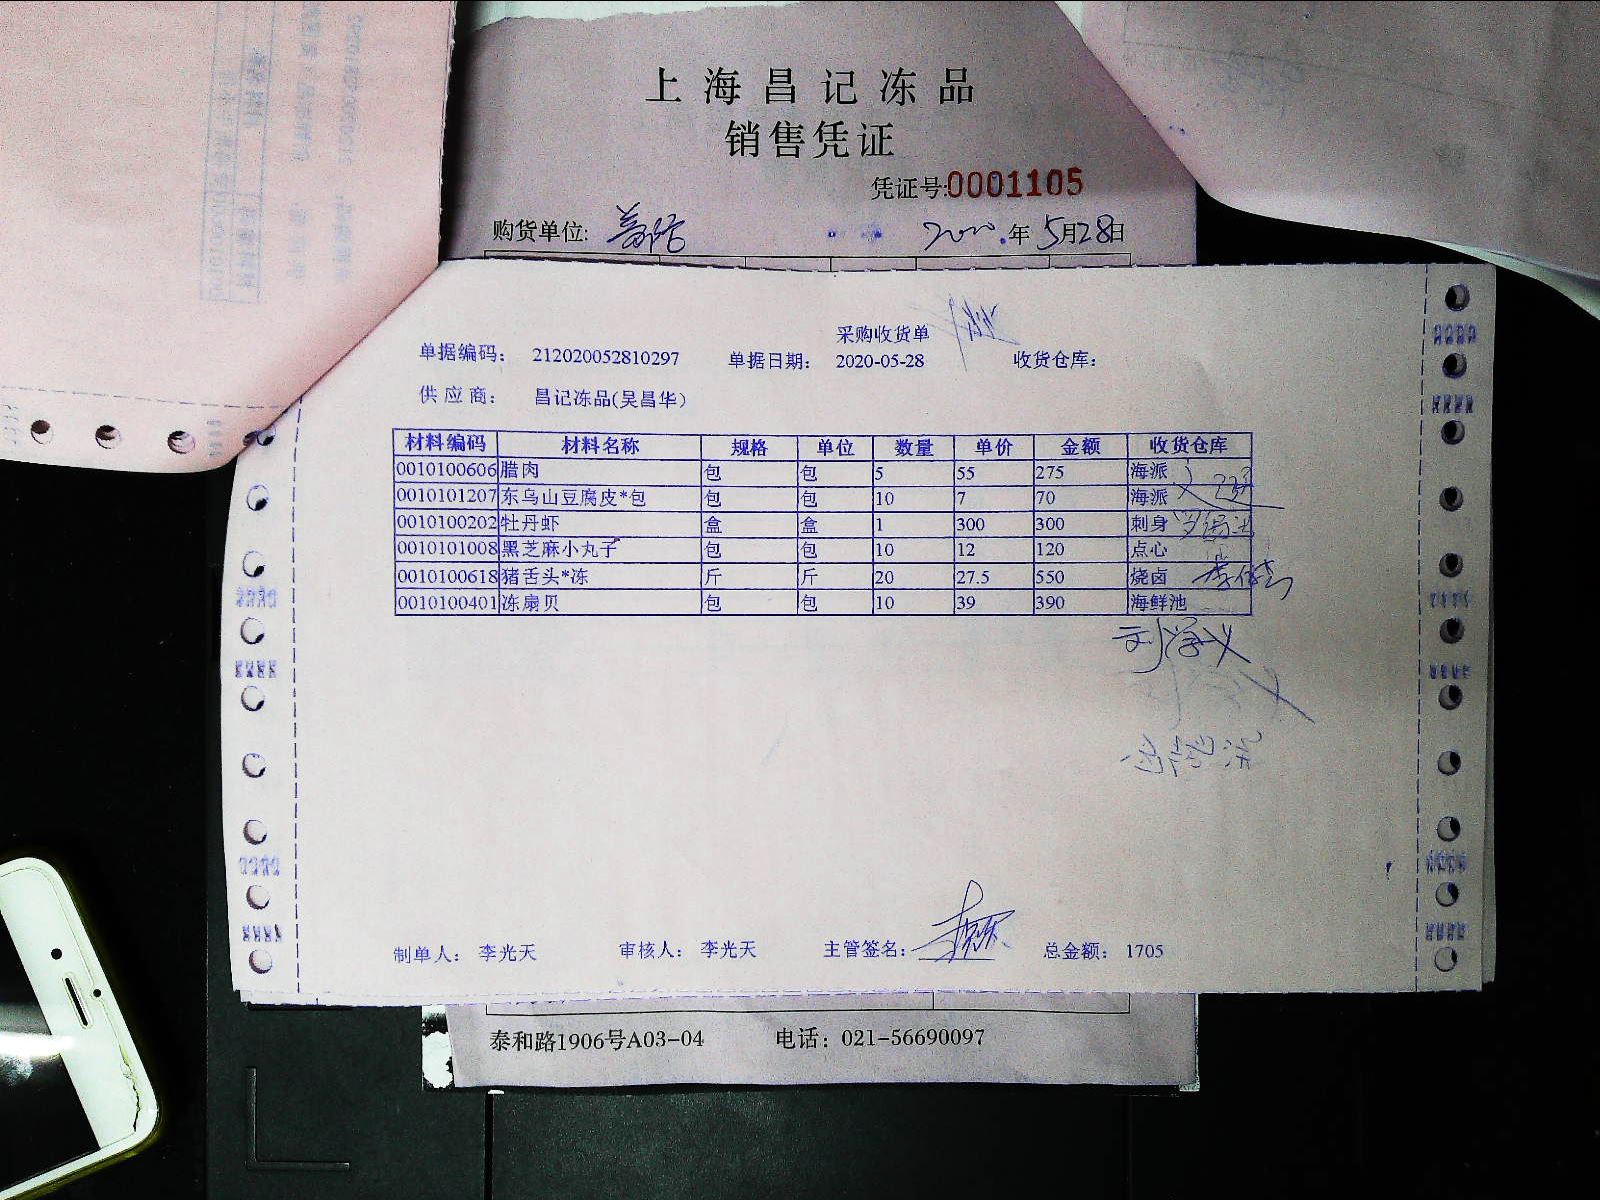 上海昌记冻品
销售凭证
凭证号:0001105
购货单位: 2020.年5月28日
采购收货单
单据编码： 212020052810297 单据日期： 2020-05-28 收货仓库：
供应商： 昌记冻品(吴昌华)
材料编码 材料名称 规格 单位 数量 单价 金额 收货仓库
0010100606 腊肉 包 包 5 55 275 海派
0010101207 东乌山豆腐皮*包 包 包 10 7 70 海派
0010100202 牡丹虾 盒 盒 1 300 300 刺身
0010101008 黑芝麻小丸子 包 包 10 12 120 点心
0010100618 猪舌头*冻 斤 斤 20 27.5 550 烧卤
0010100401 冻扇贝 包 包 10 39 390 海鲜池
制单人： 李光天 审核人： 李光天 主管签名： 总金额： 1705
泰和路1906号A03-04 电话：021-56690097